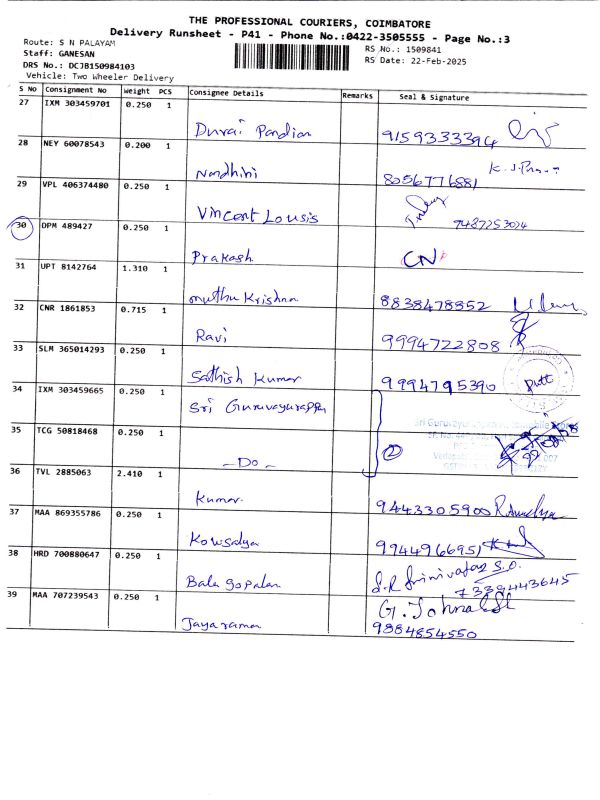 THE PROFESSIONAL COURIERS, COIMBATORE
Delivery Runsheet - P41 - Phone No.:0422-3505555 - Page No.:3
Route: S N PALAYAM
RS No.: 1509841
Staff: GANESAN
RS Date: 22-Feb-2025
DRS No.: DCJB150984103
Vehicle: Two Wheeler Delivery
S No Consignment No Weight PCS Consignee Details Remarks Seal & Signature
27 IXM 303459701 0.250 1
Durai Pandian 9159333394
28 NEY 60078543 0.200 1
Nandhini 8056776881
29 VPL 406374480 0.250 1
Vincent Lousis 9487253024
30 DPM 489427 0.250 1
Prakash CNP
31 UPT 8142764 1.310 1
muthu Krishna 8838478852
32 CNR 1861853 0.715 1
Ravi 9994722808
33 SLM 365014293 0.250 1
Sathish Kumar 9994795390
34 IXM 303459665 0.250 1
Sri Guruvayurappa
35 TCG 50818468 0.250 1
- Do - 2
36 TVL 2885063 2.410 1
Kumar 9443305900 Ramdya
37 MAA 869355786 0.250 1
Kowsalya 9944966951
38 HRD 700880647 0.250 1
Bala gopalan S.R Srinivasan S.O.
7339443645
39 MAA 707239543 0.250 1
Jayaraman G.
9884854550